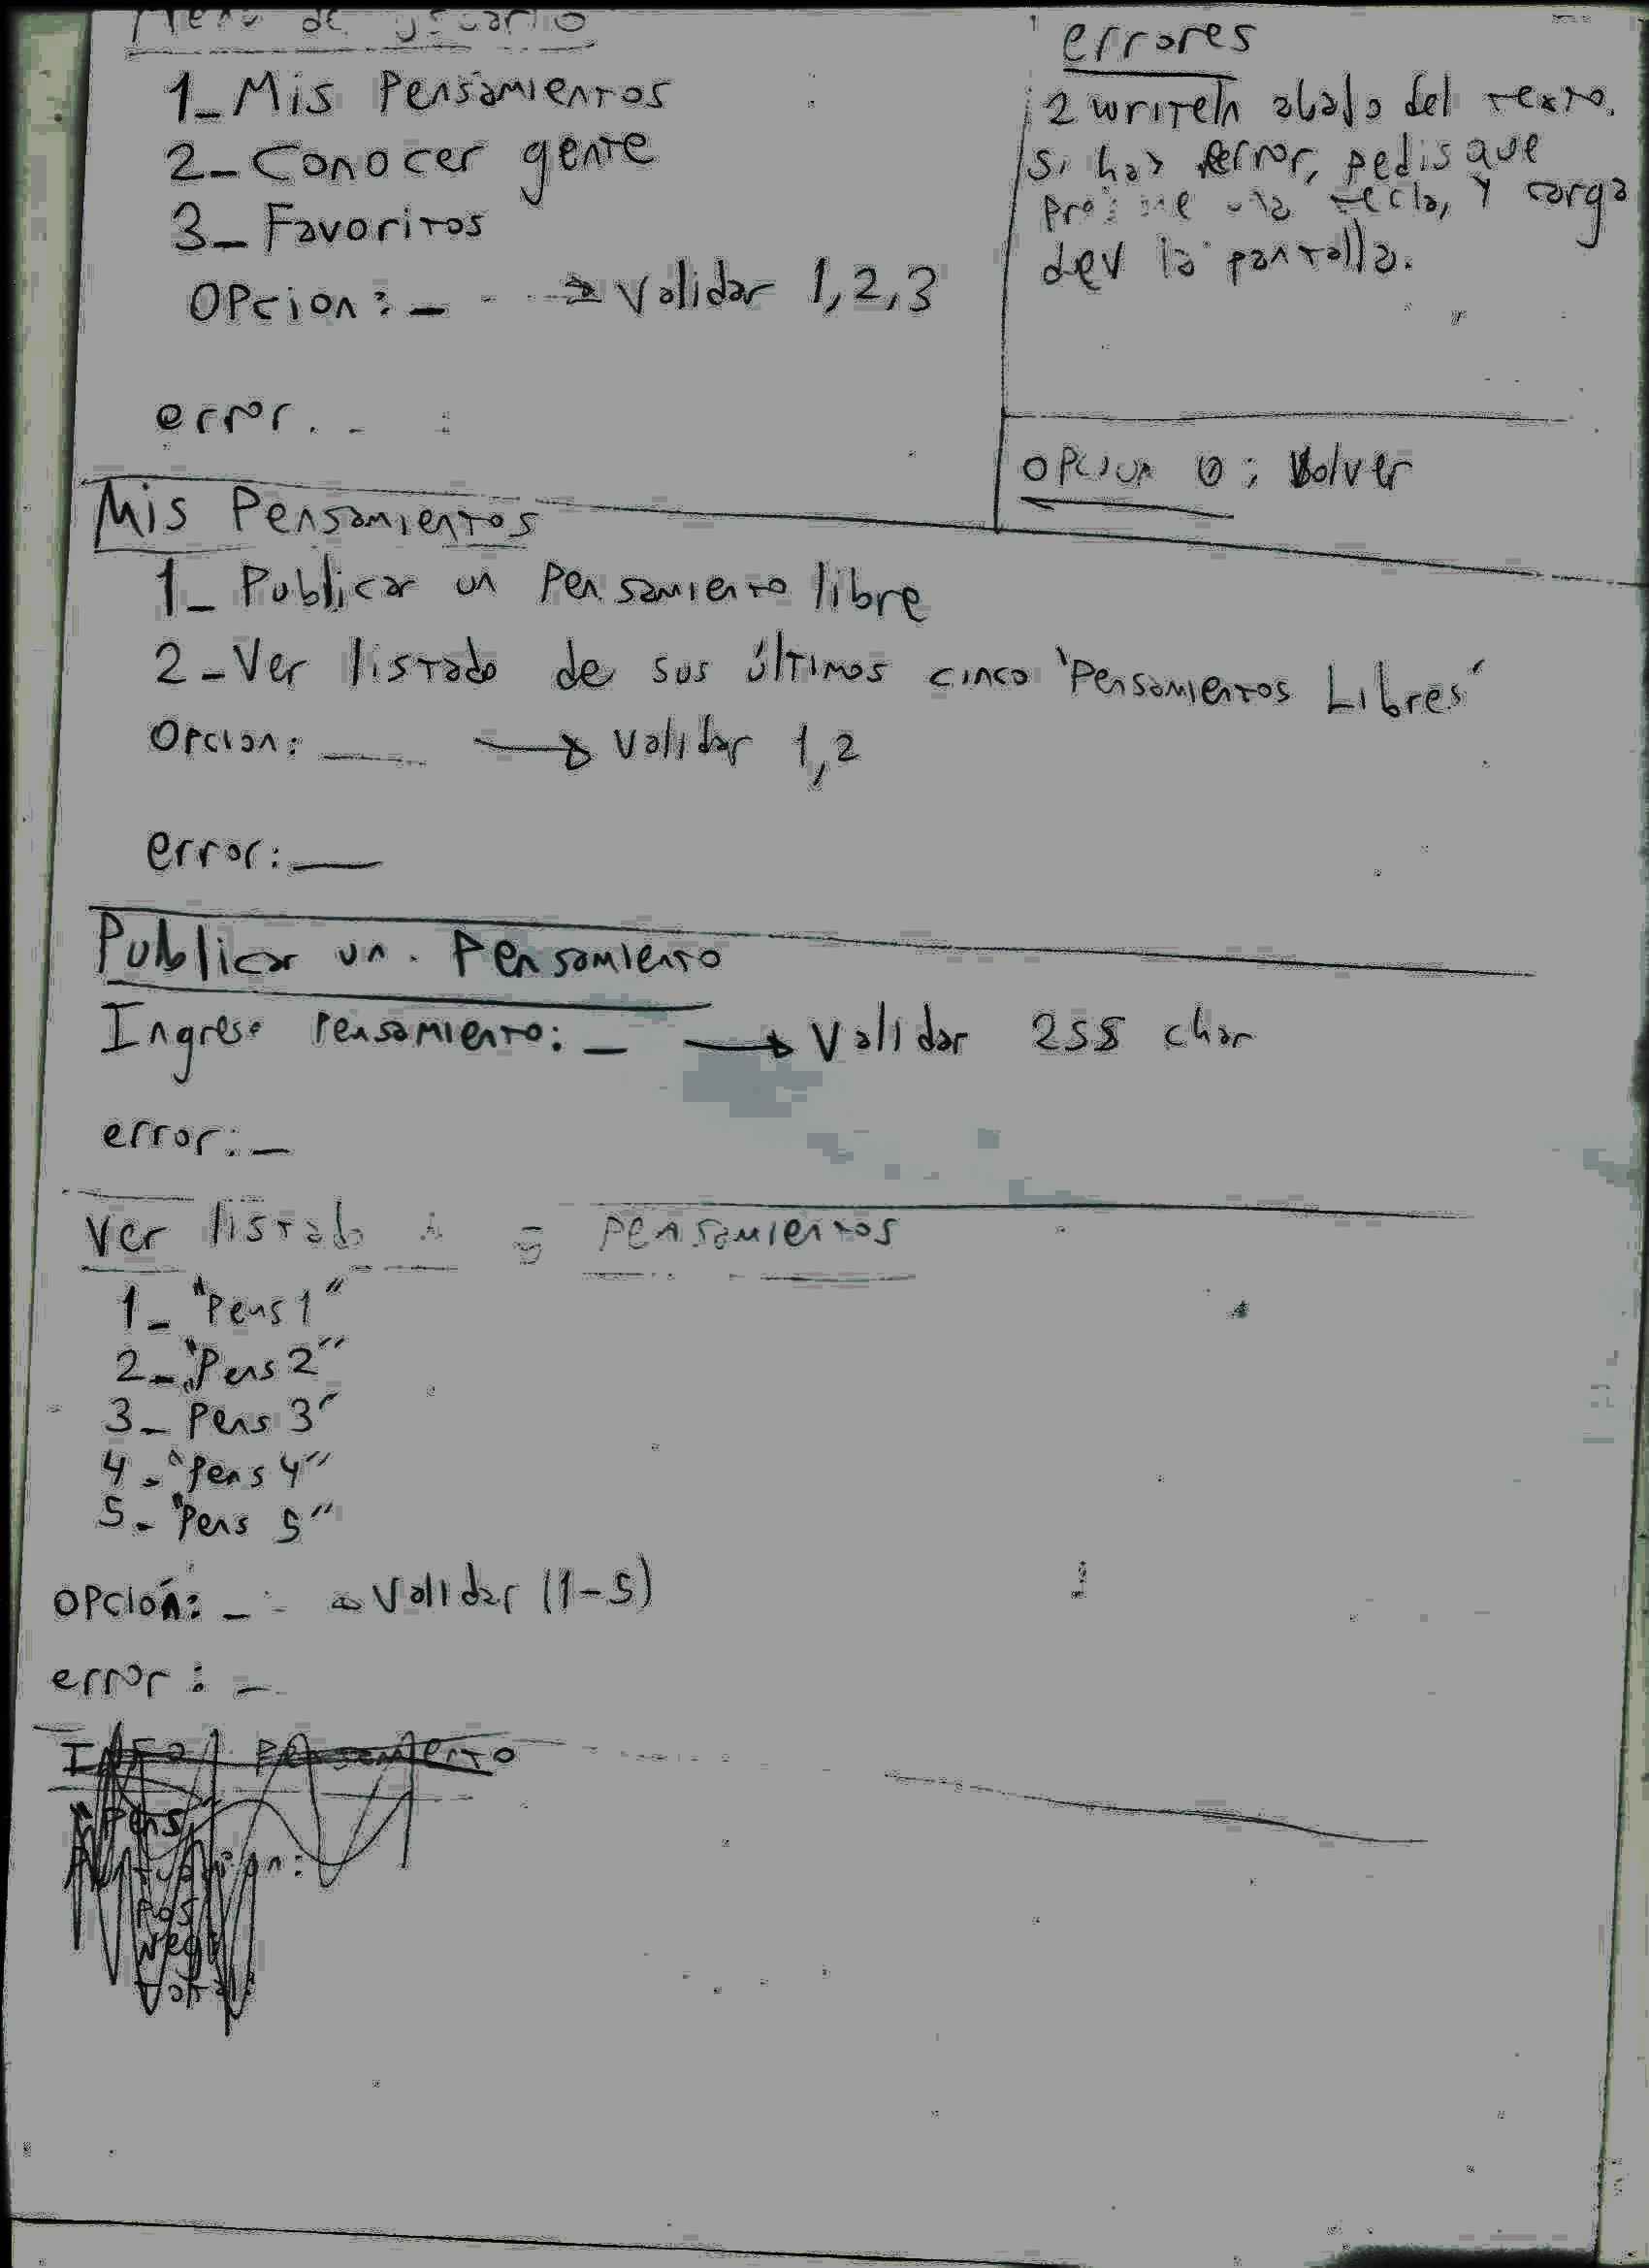 Menu de usuario
1_ Mis Pensamientos
2_ Conocer gente
3_ Favoritos
Opcion: _ → Validar 1,2,3
error. _
errores
2 writeln abajo del texto.
si hay error, pedis que
una tecla, y carga
la pantalla.
opcion 0: Volver
Mis Pensamientos
1_ Publicar un Pensamiento libre
2_Ver listado de sus últimos cinco 'Pensamientos Libres'
Opcion: __ → Validar 1,2
error: __
Publicar un Pensamiento
Ingrese Pensamiento: _ → Validar 255 char
error: _
Ver listado Pensamientos
1_ "Pens 1"
2_ "Pens 2"
3_ "Pens 3"
4_ "Pens 4"
5_ "Pens 5"
Opción: _ → Validar (1-5)
error: _